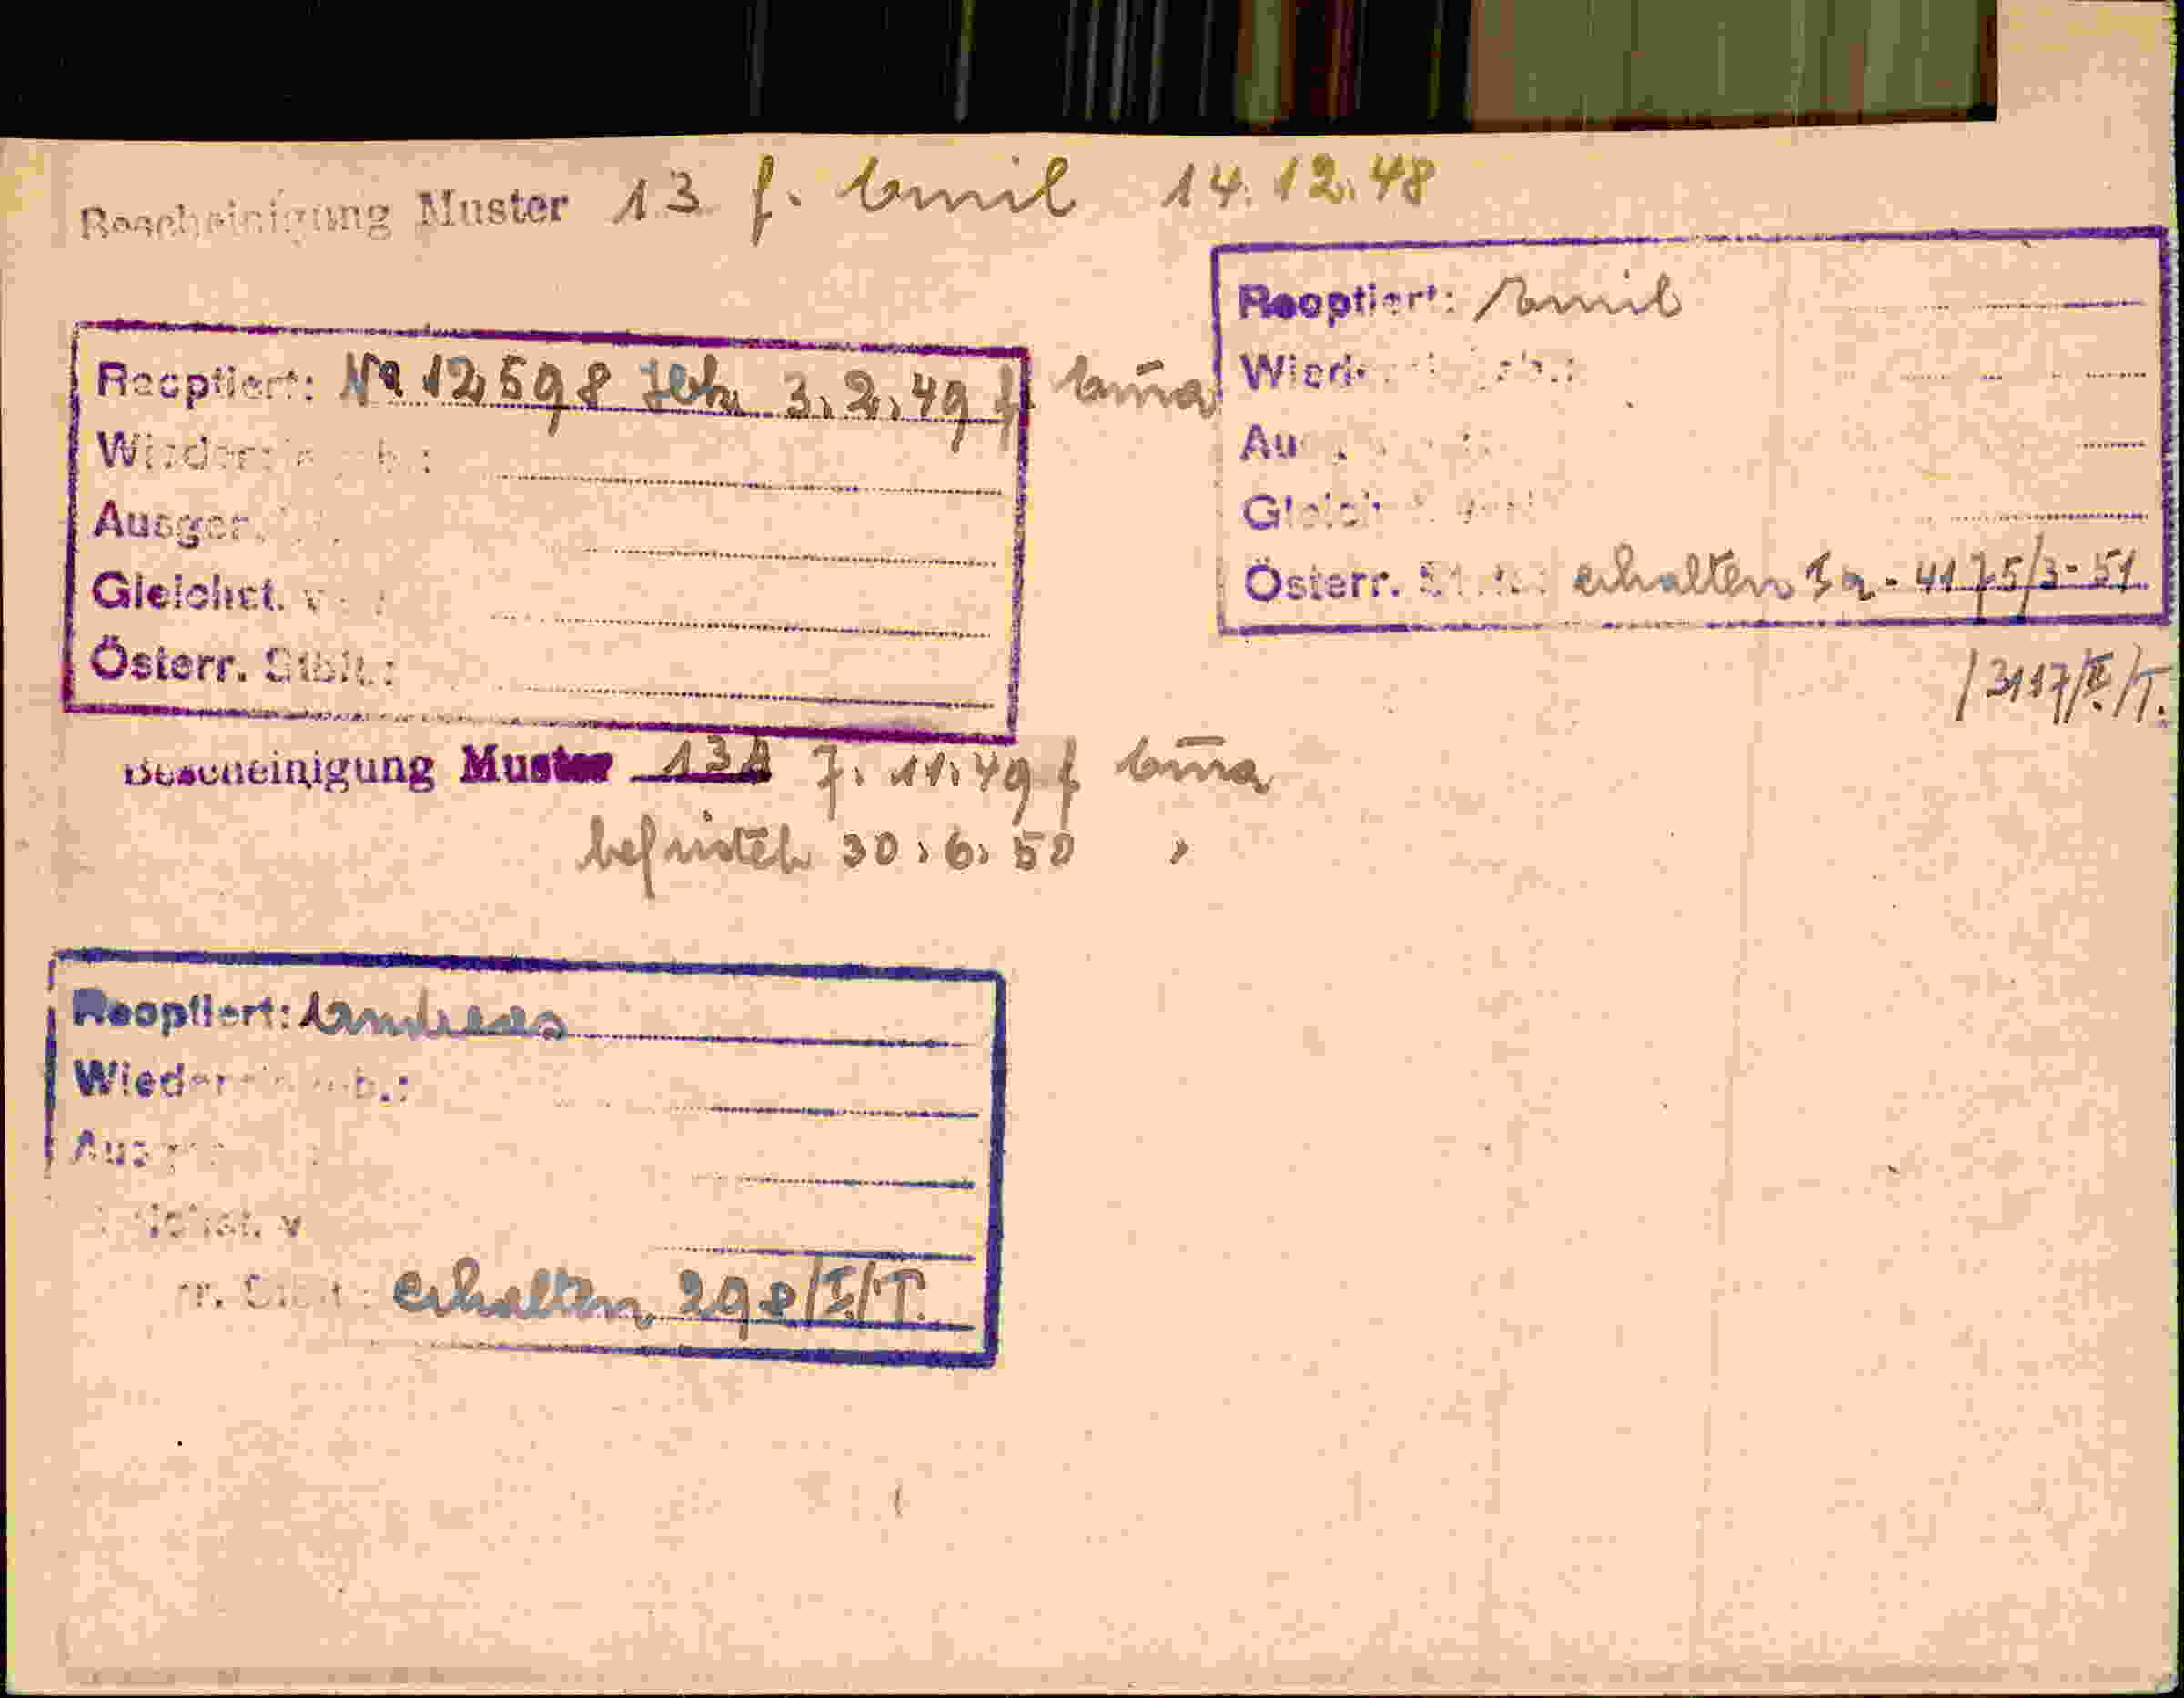 Bescheinigung Muster 13 f. Emil 14.12.48
Reoptiert: Na 12598 3.2.49 f Emma
Wiedereinb.:
Ausger.
Gleichst. v
Österr. Stblt.:
Reoptiert: Emil
Wied
Au
Gleich
Österr. erhalten Ia-4175/3-51
/3117/II/T.
Bescheinigung Muster 13A 7.11.49 f Emma
befristet 30.6.50
Reoptiert: Andreas
Wieder b.:
Ausger
ichst. v
rr. Stblt: erhalten 298/I/T.